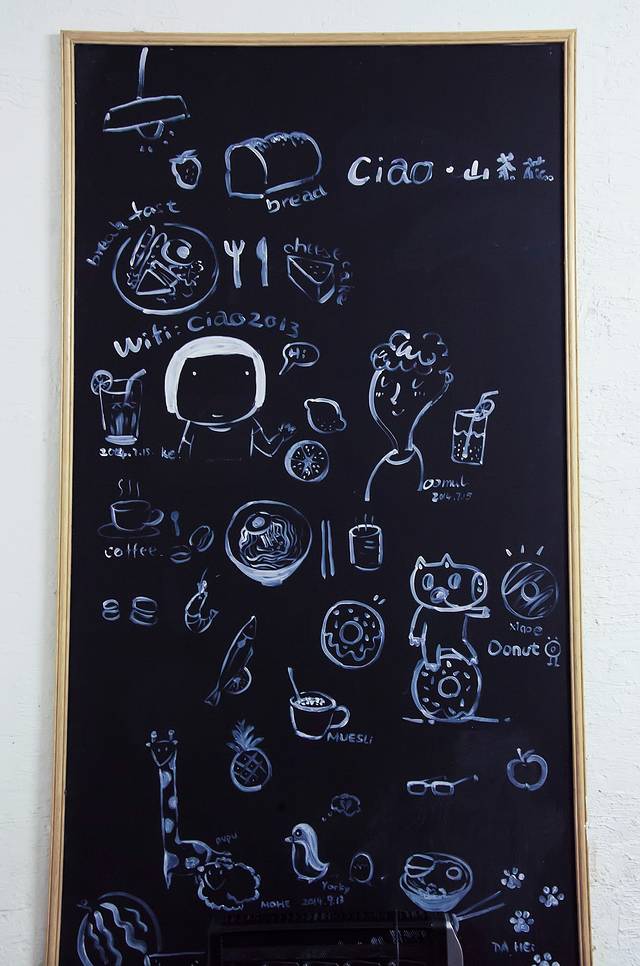 Ciao · 山茶花
bread
breakfast
cheese
cake
Wifi: Ciao2013
Hi
2014.7.15 ke
Donut
2014.7.15
coffee
xiaoe
Donut
MUESLi
pupu
Yorky
MOHE 2014.9.13
DA HEi